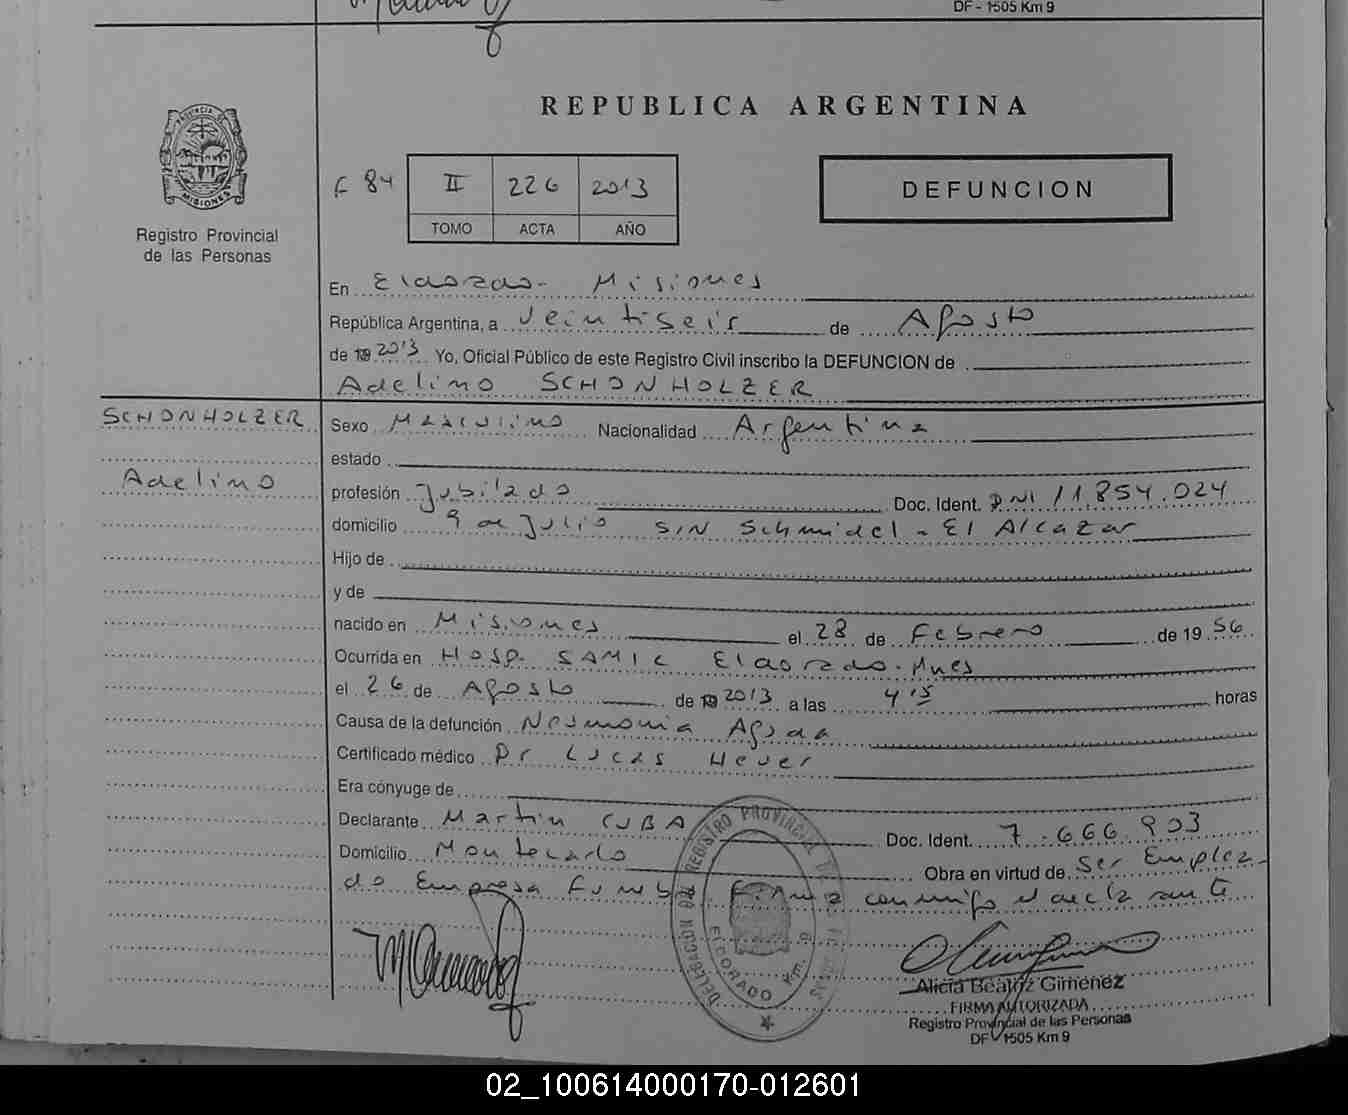 DF - 1505 Km 9
REPUBLICA ARGENTINA
PROVINCIA DE MISIONES
Registro Provincial
de las Personas
F 84 II 226 2013
TOMO ACTA AÑO
DEFUNCION
En Eldorado - Misiones
República Argentina, a Veintiseis de Agosto
de 19 2013 Yo, Oficial Público de este Registro Civil inscribo la DEFUNCION de
Adelino SCHONHOLZER
SCHONHOLZER
Adelino
Sexo Masculino Nacionalidad Argentina
estado
profesión Jubilado Doc. Ident. DNI 11.854.024
domicilio 9 de Julio S/N Schmidel - El Alcazar
Hijo de
y de
nacido en Misiones el 28 de Febrero de 19 56
Ocurrida en Hosp. SAMIC Eldorado - Mnes
el 26 de Agosto de 19 2013 a las 4 15 horas
Causa de la defunción Neumonia Aguda
Certificado médico Dr Lucas Heuer
Era cónyuge de
Declarante Martin CUBA Doc. Ident. 7.666.903
Domicilio Montecarlo Obra en virtud de Ser Emplea-
do Empresa Funeb Firma conmigo el declarante
DELEGACION DEL REGISTRO PROVINCIAL DE LAS PERSONAS
ELDORADO Km. 9
Alicia Beatriz Gimenez
FIRMA AUTORIZADA
Registro Provincial de las Personas
DF - 1505 Km 9
02_100614000170-012601